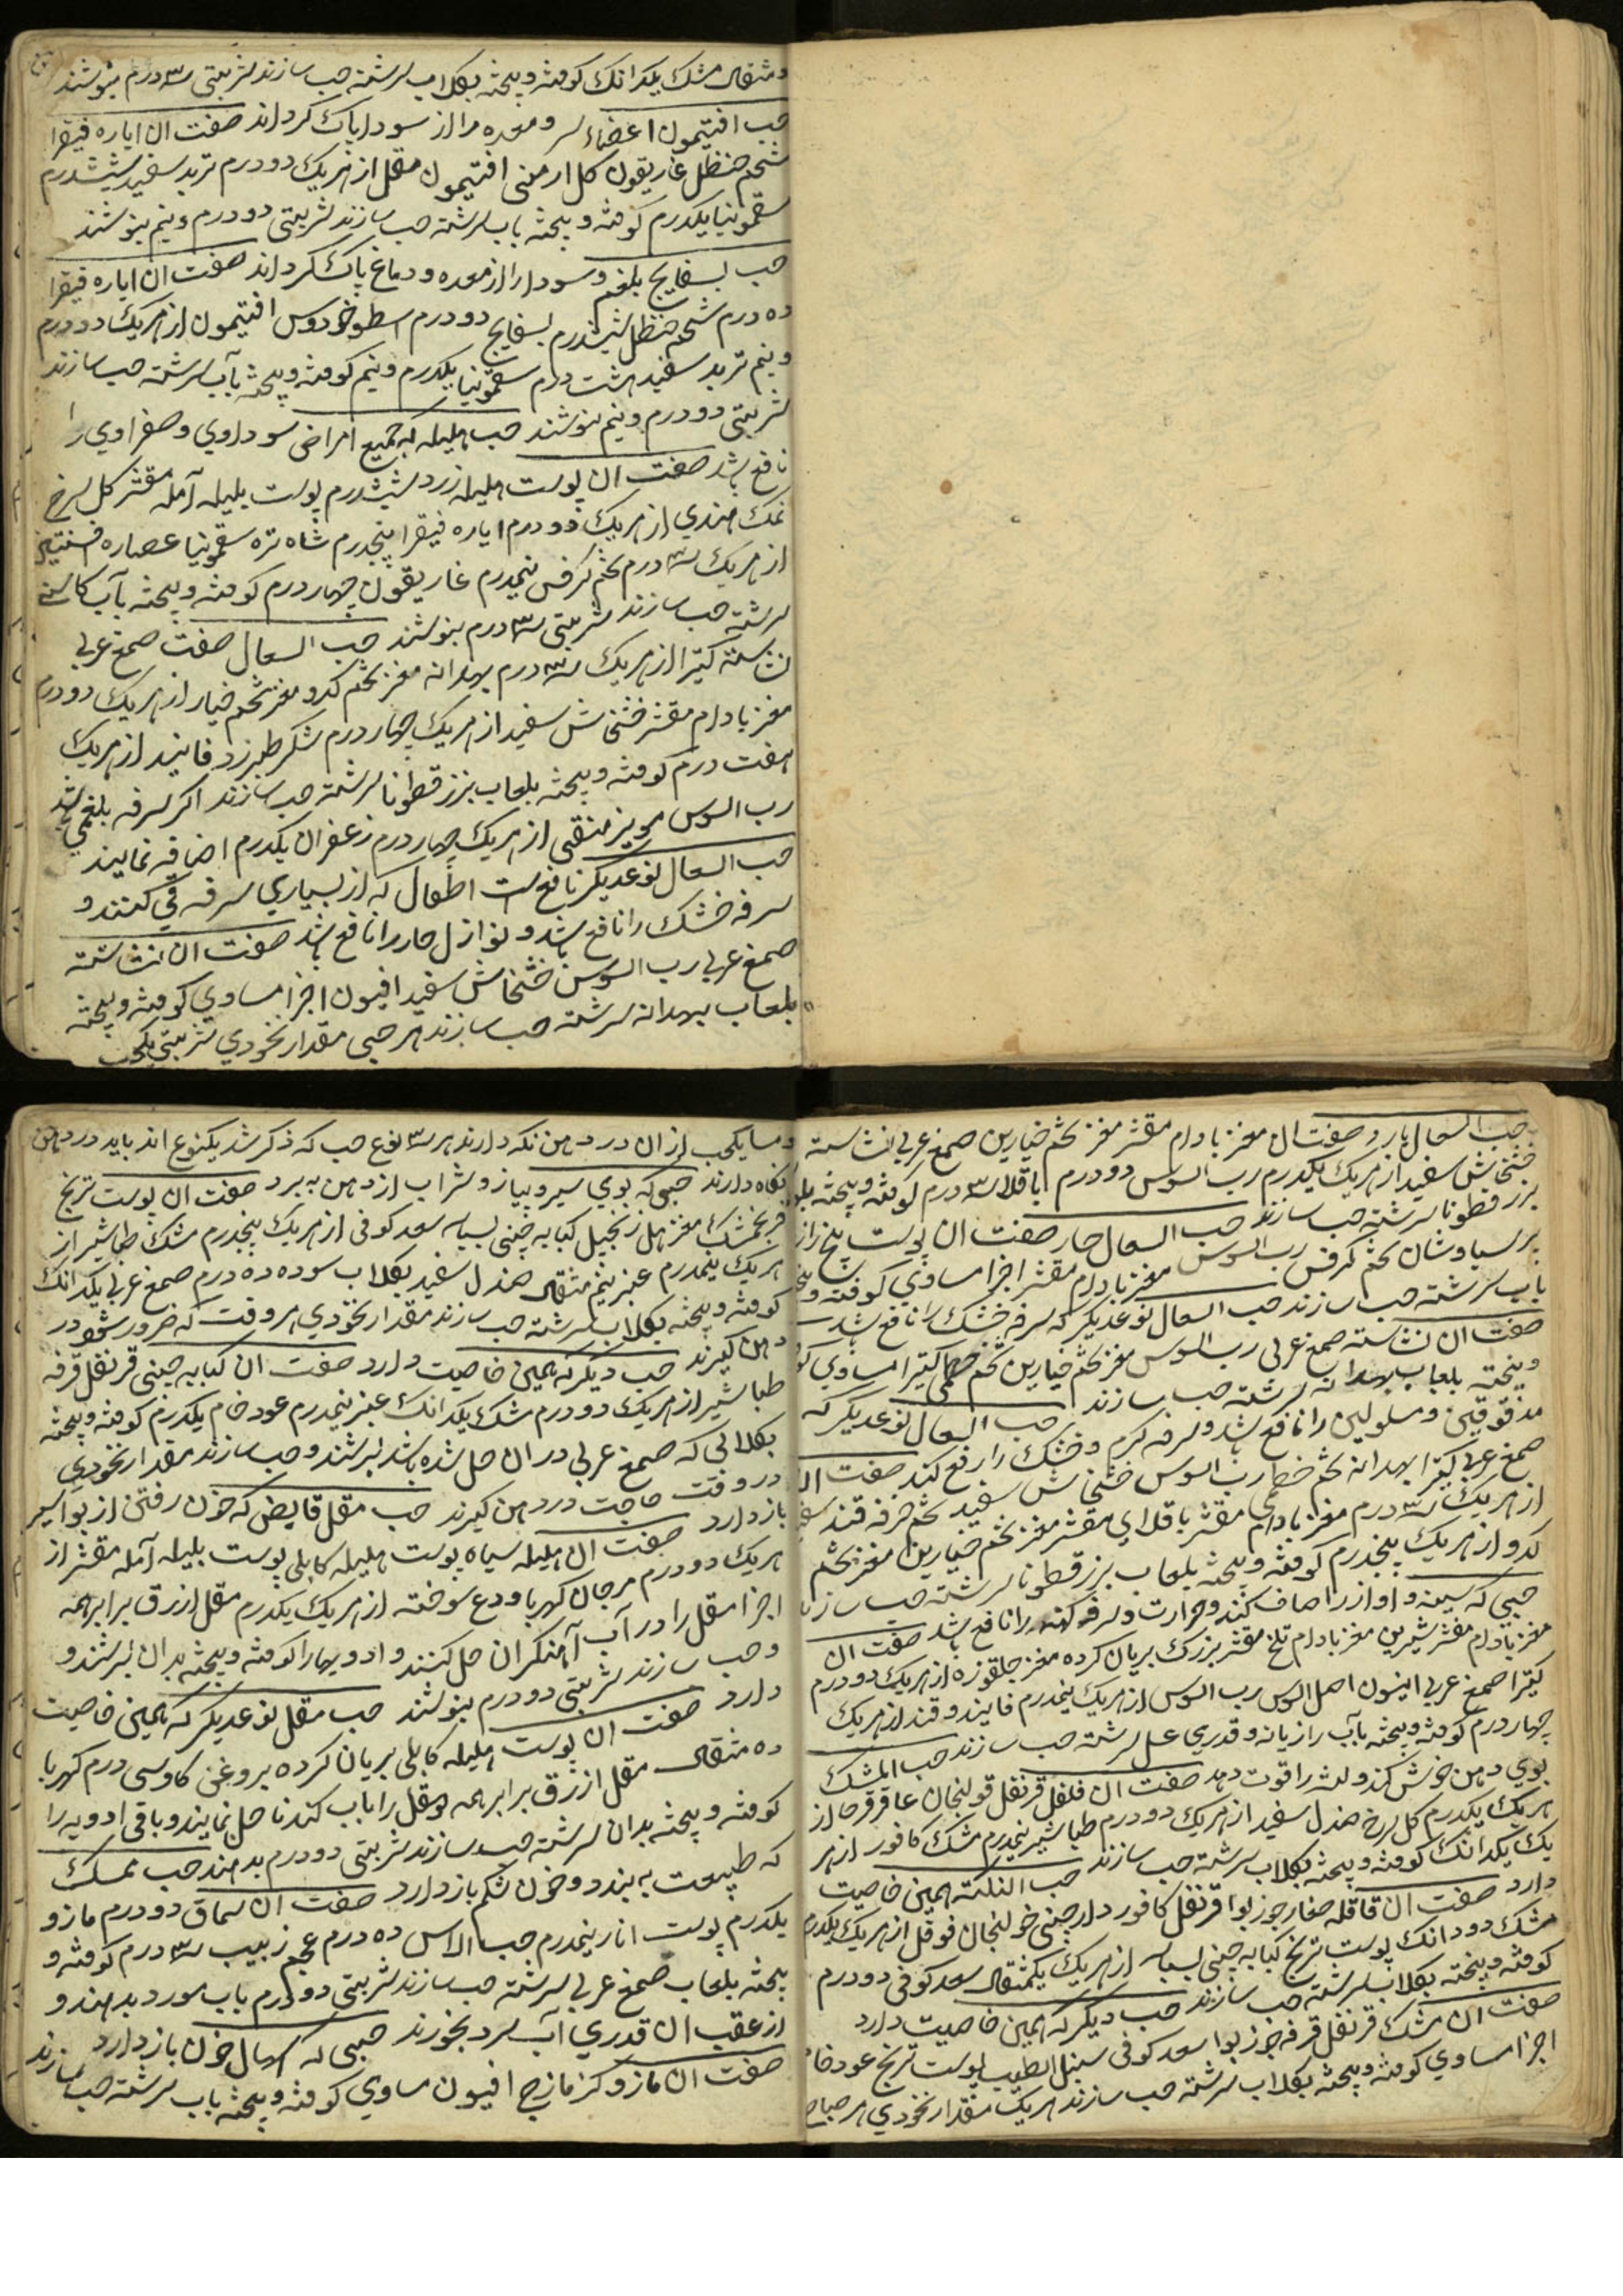 و مثقال مشک یکدانک کوفته و بیخته بکلاب سرشته حب سازند شربتی سه درم بنوشند
حب افتیمون اعضاء سر و معده را از سودا پاک کرداند صفت ان ایاره فیقرا
شحم حنظل غاریقون کل ارمنی افتیمون مقل از هریک دو درم تربد سفید ششدرم
سقمونیا یکدرم کوفته و بیخته باب سرشته حب سازند شربتی دو درم و نیم بنوشند
حب بسفایج بلغم و سودا را از معده و دماغ پاک کرداند صفت ان ایاره فیقرا
ده درم شحم حنظل ششدرم بسفایج دو درم اسطوخودوس افتیمون از هریک دو درم
و نیم تربد سفید هشت درم سقمونیا یکدرم و نیم کوفته و بیخته بآب سرشته حب سازند
شربتی دو درم و نیم بنوشند حب هلیله که جمیع امراض سوداوی و صفراوی را
نافع باشد صفت ان پوست هلیله زرد ششدرم پوست بلیله آمله مقشر کل سرخ
نمک هندی از هریک دو درم ایاره فیقرا پنجدرم شاه تره سقمونیا عصاره افسنتین
از هریک سه درم تخم کرفس نیمدرم غاریقون چهار درم کوفته و بیخته بآب کاسنی
سرشته حب سازند شربتی سه درم بنوشند حب السعال صفت صمغ عربی
نشاسته کتیرا از هریک سه درم بهدانه مغز تخم کدو مغز تخم خیار از هریک دو درم
مغز بادام مقشر خشخاش سفید از هریک چهار درم شکر طبرزد فانید از هریک
هفت درم کوفته و بیخته بلعاب بزرقطونا سرشته حب سازند اکر سرفه بلغمی باشد
رب السوس مویز منقی از هریک چهار درم زعفران یکدرم اضافه نمایند
حب السعال نوعدیکر نافع است اطفال که از بسیاری سرفه قی کنند و
سرفه خشک را نافع باشد و نوازل حار را نافع باشد صفت ان نشاسته
صمغ عربی رب السوس خشخاش سفید افیون اجزا مساوی کوفته و بیخته
بلعاب بهدانه سرشته حب سازند هر حبی مقدار نخودی شربتی یکحب
حب السعال بارد صفت ان مغز بادام مقشر مغز تخم خیارین صمغ عربی نشاسته
خشخاش سفید از هریک یکدرم رب السوس دو درم باقلا سه درم کوفته و بیخته
بزرقطونا سرشته حب سازند حب السعال حار صفت ان پوست بیخ
پرسیاوشان تخم کرفس رب السوس مغز بادام مقشر اجزا مساوی کوفته و
باب سرشته حب سازند حب السعال نوعدیکر که سرفه خشک را نافع باشد
صفت ان نشاسته صمغ عربی رب السوس مغز تخم خیارین تخم خطمی کتیرا مساوی
و بیخته بلعاب بهدانه سرشته حب سازند حب السعال نوعدیکر که
مدقوقین و مسلولین را نافع باشد و سرفه کرم و خشک را رفع کند صفت
صمغ عربی کتیرا بهدانه تخم خطمی رب السوس خشخاش سفید تخم خرفه قند
از هریک سه درم مغز بادام مقشر باقلای مقشر مغز تخم خیارین مغز تخم
کدو از هریک پنجدرم کوفته و بیخته بلعاب بزرقطونا سرشته حب سازند
حبی که سینه و اواز را صاف کند و حرارت و سرفه کهنه را نافع باشد صفت ان
مغز بادام مقشر شیرین مغز بادام تلخ مقشر بزرک بریان کرده مغز جلقوزه از هریک دو درم
کتیرا صمغ عربی انیسون اصل السوس رب السوس از هریک نیمدرم فانید و قند از هریک
چهار درم کوفته و بیخته بآب رازیانه و قدری عسل سرشته حب سازند حب المشک
بوی دهن خوش کند و لثه را قوت دهد صفت ان فلفل قرنفل قولنجان عاقرقرحا از
هریک یکدرم کل سرخ صندل سفید از هریک دو درم طباشیر نیمدرم مشک کافور از هر
یک یکدانک کوفته و بیخته بکلاب سرشته حب سازند حب النکته همین خاصیت
دارد صفت ان قاقله صغار جوز بوا قرنفل کافور دارچینی خولنجان فوفل از هریک یکدرم
مشک دو دانک پوست ترنج کبابه چینی بسباسه از هریک یکمثقال سعد کوفی دو درم
کوفته و بیخته بکلاب سرشته حب سازند حب دیکر که همین خاصیت دارد
صفت ان مشک قرنفل قرفه جوز بوا سعد کوفی سنبل الطیب پوست ترنج عود خام
اجزا مساوی کوفته و بیخته بکلاب سرشته حب سازند هریک مقدار نخودی هر صباح
و مسا یکحب از ان در دهن نکه دارند هر سه نوع حب که ذکر شد یکنوع اند باید در دهن
نکاه دارند حبی که بوی سیر و پیاز و شراب از دهن ببرد صفت ان پوست ترنج
فرنجمشک مغز هل زنجبیل کبابه چینی بسباسه سعد کوفی از هریک پنجدرم مشک طباشیر از
هریک نیمدرم عنبر نیم مثقال صندل سفید بکلاب سوده ده درم صمغ عربی یکدانک
کوفته و بیخته بکلاب سرشته حب سازند مقدار نخودی هر وقت که ضرور شود در
دهن کیرند حب دیکر که همین خاصیت دارد صفت ان کبابه چینی قرنفل قرفه
طباشیر از هریک دو درم مشک یکدانک عنبر نیمدرم عود خام یکدرم کوفته و بیخته
بکلابی که صمغ عربی در ان حل شده باشد بسرشند و حب سازند مقدار نخودی
در وقت حاجت در دهن کیرند حب مقل قابض که خون رفتن از بواسیر
باز دارد صفت ان هلیله سیاه پوست هلیله کابلی پوست بلیله آمله مقشر از
هریک دو درم مرجان کهربا ودع سوخته از هریک یکدرم مقل ازرق برابر همه
اجزا مقل را در آب آهنکران حل کنند و ادویها را کوفته و بیخته بدان بسرشند و
و حب سازند شربتی دو درم بنوشند حب مقل نوعدیکر که همین خاصیت
دارد صفت ان پوست هلیله کابلی بریان کرده بروغن کاو سی درم کهربا
ده مثقال مقل ازرق برابر همه مقل را باب کندنا حل نمایند و باقی ادویه را
کوفته و بیخته بدان سرشته حب سازند شربتی دو درم بدهند حب ممسک
که طبیعت ببندد و خون شکم باز دارد صفت ان سماق دو درم مازو
یکدرم پوست انار نیمدرم حب الاس ده درم عجم زبیب سه درم کوفته و
بیخته بلعاب صمغ عربی سرشته حب سازند شربتی دو درم باب مورد بدهند و
از عقب ان قدری آب سرد بخورند حبی که اسهال خون باز دارد
صفت ان مازو کزمازج افیون مساوی کوفته و بیخته باب سرشته حب سازند